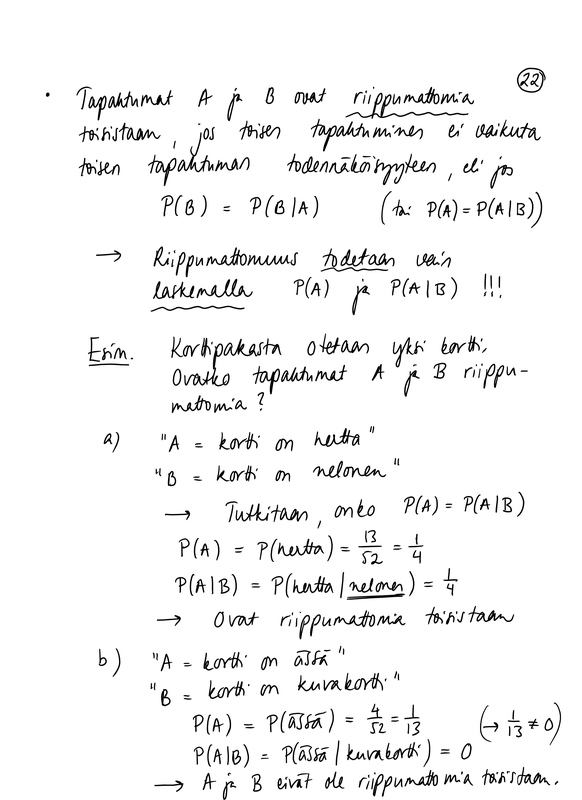 22
• Tapahtumat A ja B ovat riippumattomia
toisistaan, jos toisen tapahtuminen ei vaikuta
toisen tapahtuman todennäköisyyteen, eli jos
P(B) = P(B|A) (tai P(A) = P(A|B))
→ Riippumattomuus todetaan vain
laskemalla P(A) ja P(A|B) !!!
Esim. Korttipakasta otetaan yksi kortti.
Ovatko tapahtumat A ja B riippu-
mattomia?
a) "A = kortti on hertta"
"B = kortti on nelonen"
→ Tutkitaan, onko P(A) = P(A|B)
P(A) = P(hertta) = 13/52 = 1/4
P(A|B) = P(hertta|nelonen) = 1/4
→ Ovat riippumattomia toisistaan
b) "A = kortti on ässä"
"B = kortti on kuvakortti"
P(A) = P(ässä) = 4/52 = 1/13 (→ 1/13 ≠ 0)
P(A|B) = P(ässä | kuvakortti) = 0
→ A ja B eivät ole riippumattomia toisistaan.